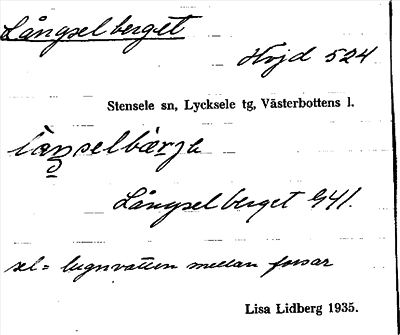 Långselberget
Höjd 524
Stensele sn, Lycksele tg, Västerbottens l.
Långselberget 941.
sel = lugnvatten mellan forsar
Lisa Lidberg 1935.